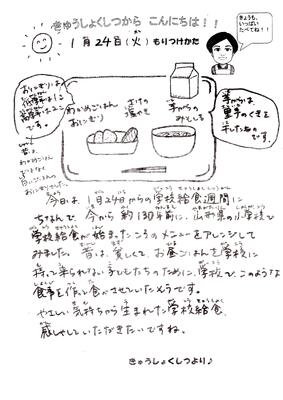 きゅうしょくしつから こんにちは！！
1月24日(火) もりつけかた
きょうも、
いっぱい
たべてね！！
わかめごはん
おにぎり
さけの
塩やき
牛から
みそしる
おにぎりは、
です。
です。
今日は、1月24日からの学校給食週間に
ちなんで、今から約130年前に、山形県の小学校で
学校給食が始まったころのメニューをアレンジして
みました。昔は、貧しくて、お昼ごはんを学校に
持って来られない子どもたちのために、学校で、このような
食事を作って食べさせていたそうです。
やさしい気持ちから生まれた学校給食、
感しゃしていただきたいですね。
きゅうしょくしつより♪